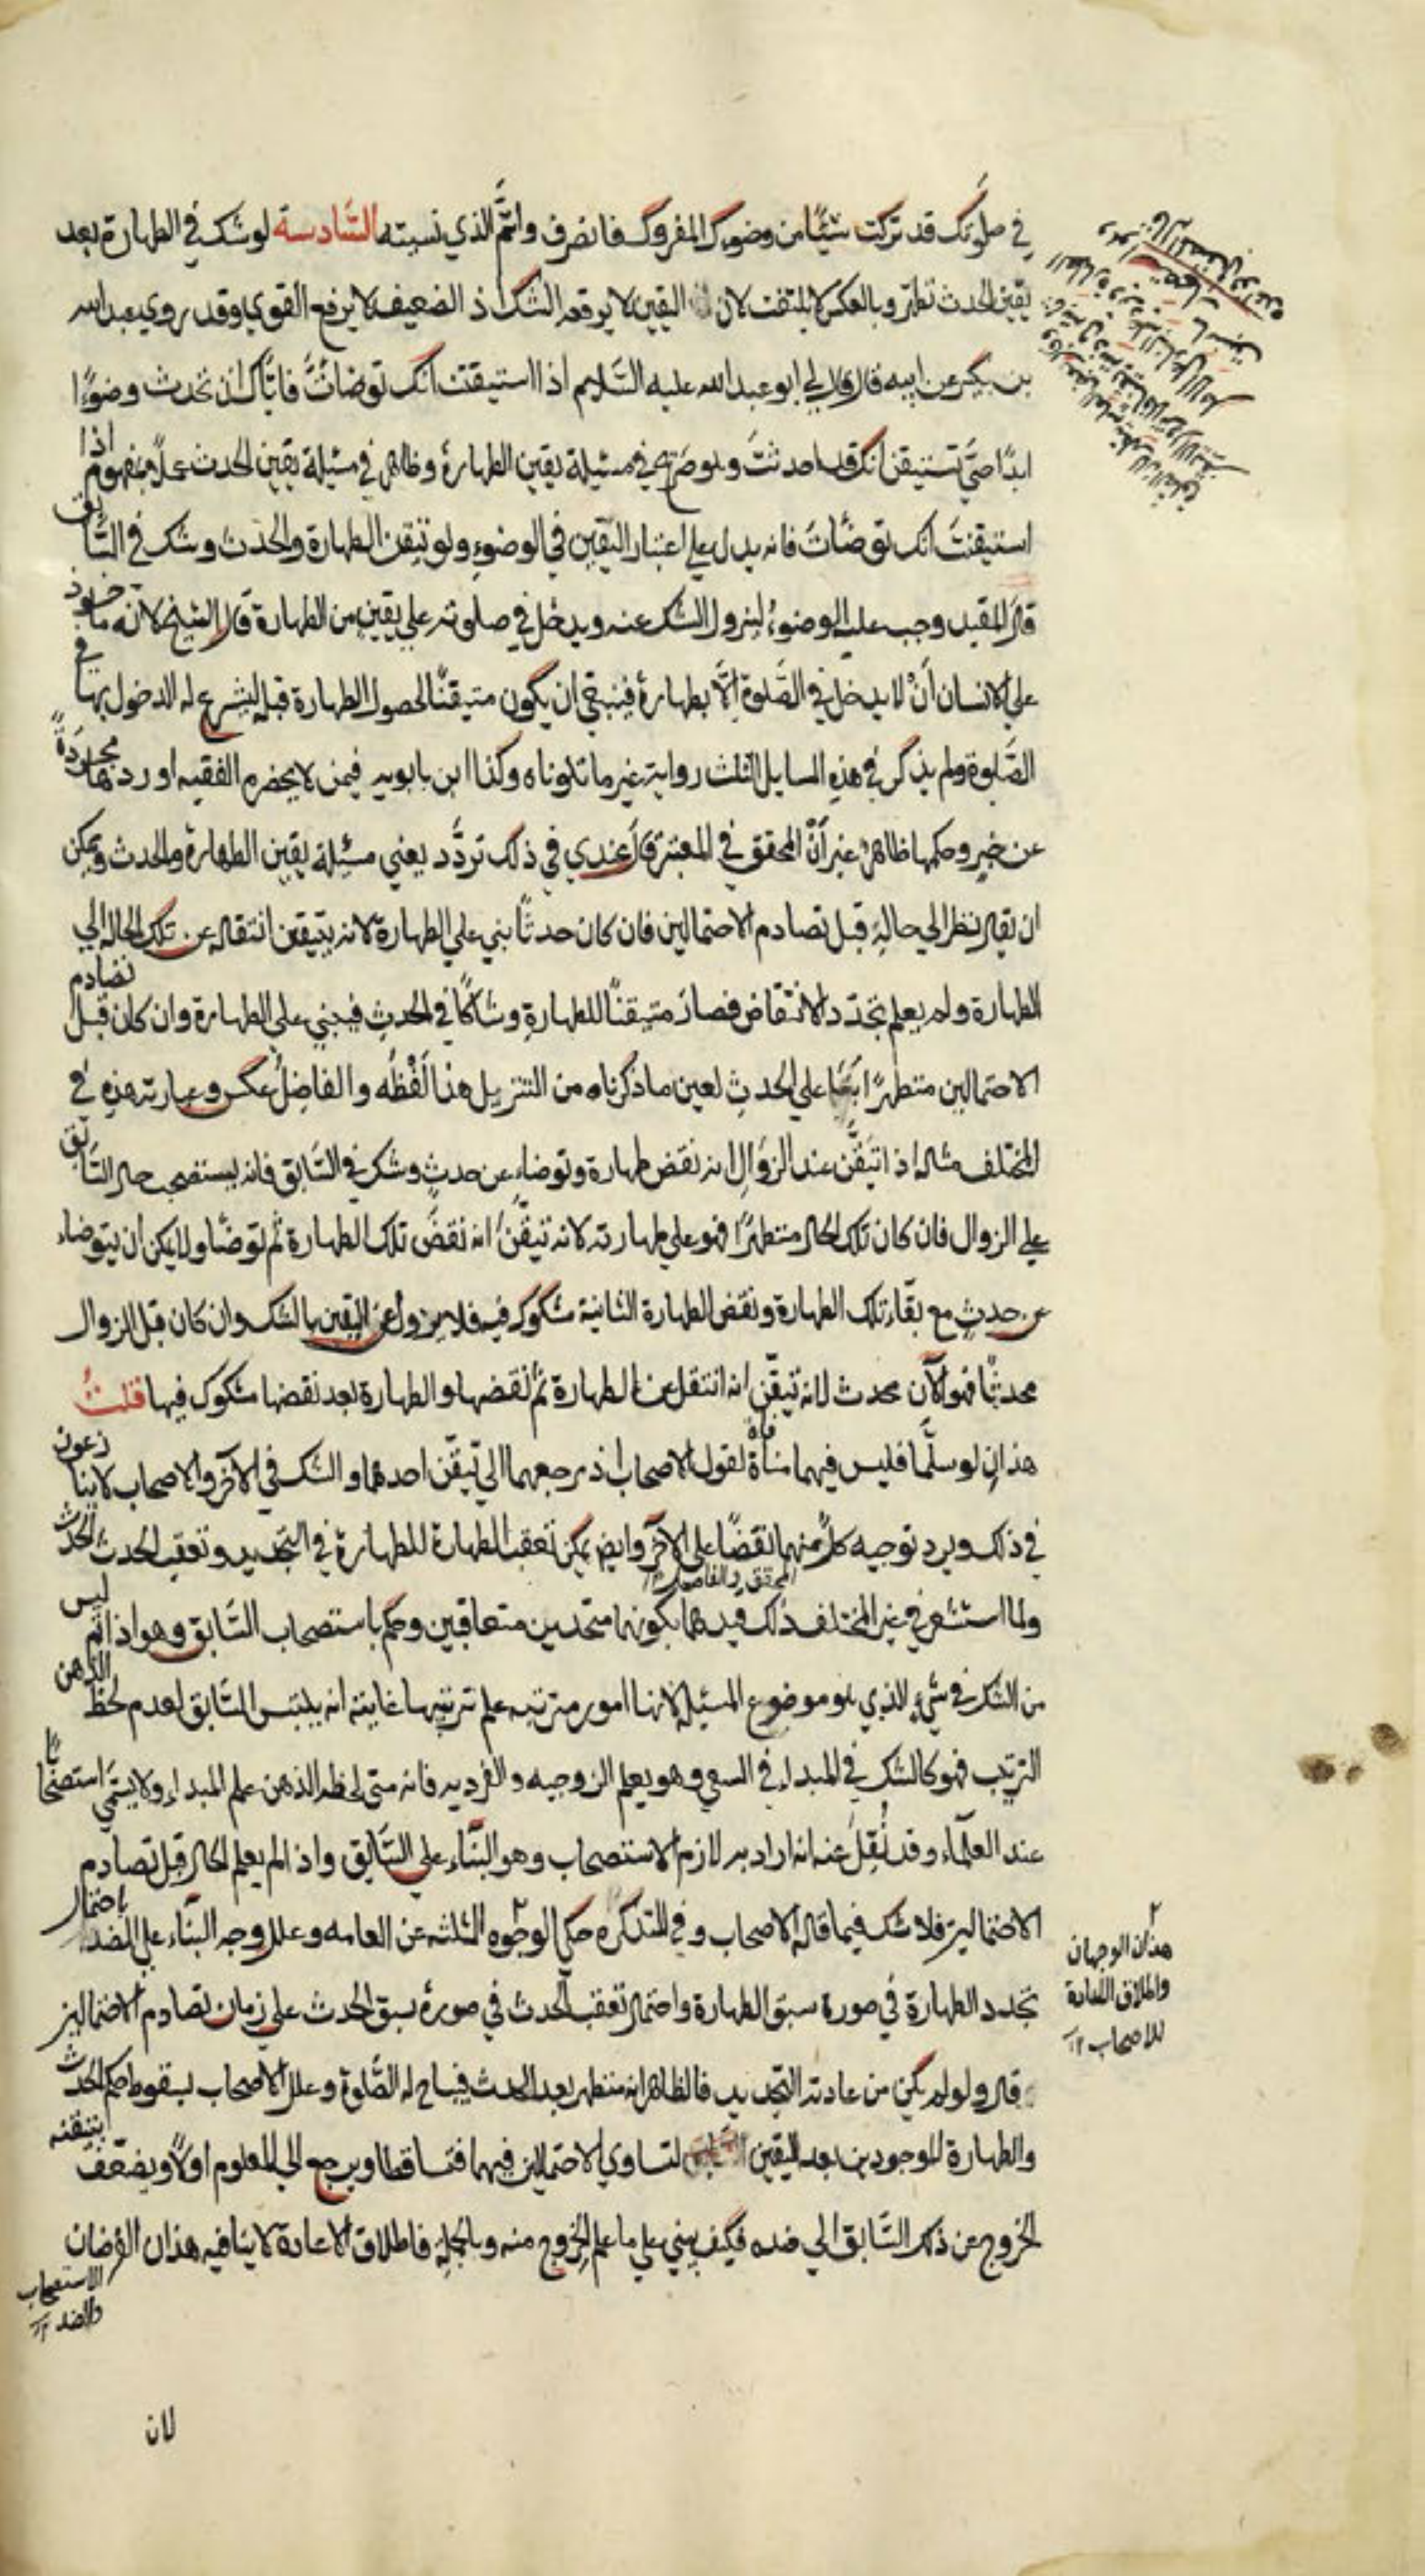 في صلوتك قد تركت شيئًا من وضوءك المفروك فانصرف واتمّ الذي نسيته السّادسة لو شك في الطهارة بعد
يقين الحدث تطهّر وبالعكس لا يلتفت لان اليقين لا يرفعه الشك اذ الضعيف لا يرفع القوي وقد روي عبد الله
بن بكير عن ابيه قال قال لي ابو عبد الله عليه السّلام اذا استيقنت انك توضأتَ فايّاك ان تحدث وضوءًا
ابدًا حتّي تستيقن انك قد احدثتَ وهو صريح في مسئلة يقين الطهارة وظاهر في مسئلة يقين الحدث عملًا بمفهوم اذا
استيقنتَ انك توضّأتَ فانه يدل علي اعتبار اليقين في الوضوء ولو تيقن الطهارة والحدث وشك في السّابق
قال المفيد وجب عليه الوضوء ليزول الشك عنه ويدخل في صلوته علي يقين من الطهارة قال الشيخ لانه ماخوذ
علي الانسان أنْ لا يدخل في الصّلوة إلّا بطهارة فينبغي ان يكون متيقنًا لحصول الطهارة قبله ليشرع له الدخول بها في
الصّلوة ولم يذكر في هذه المسايل الثلث رواية غير ما تلوناه وكذا ابن بابويه فيمن لا يحضره الفقيه اوردها مجرّدةً
عن خبر وحكمها ظاهر غير أنّ المحقق في المعتبر قال عندي في ذلك تردّد يعني مسئلة يقين الطهارة والحدث ويمكن
ان يقال ينظر الي حاله قبل تصادم الاحتمالين فان كان حدثًا بني علي الطهارة لانه يتيقن انتقاله عن تلك الحالة الي
الطهارة ولم يعلم تجدّد الانتقاض فصار متيقنًا للطهارة وشاكًا في الحدث فيبني علي الطهارة وان كان قبل تصادم
الاحتمالين متطهرًا بني علي الحدث لعين ما ذكرناه من التنزيل هذا لَفْظُه والفاضلُ عكس وعبارته هذه في
المختلف مثاله اذا تيَقَّن عند الزوال انه نقض طهارة وتوضاء عن حدثٍ وشك في السّابق فانه يستصحب حال السّابق
علي الزوال فان كان تلك الحال متطهرًا فهو علي طهارته لانه تيقّنَ انه نقضَ تلك الطهارة ثم توضّا ولا يمكن ان يتوضاء
عن حدثٍ مع بقاء تلك الطهارة ونقض الطهارة الثانية مشكوك فيه فلا يزول عن اليقين بالشك وان كان قبل الزوال
محدثًا فهو الآن محدث لانه تيقّن انه انتقل عن الطهارة ثم نقضها والطهارة بعد نقضها مشكوك فيها قلتُ
هذان لو سلّما فليس فيهما منافاة لقول الاصحاب اذ مرجعهما الي تيقّن احدهما والشك في الآخر والاصحاب لا ينازعون
في ذلك ويرد توجيه كلٍّ منهما نقضًا علي الآخر وايضً يمكن تعقب الطهارة للطهارة في التجديد وتعقب الحدث الحدث
المحقق والفاضل ١٢
ولما استشعر في غير المختلف ذلك قيدهما بكونهما متحدين متعاقبين وحكم باستصحاب السّابق وهو اذا تمّ ليس
من الشك في شيء الذي هو موضوع المسئلة لانها امور مترتبه علم ترتيبها غايته انه يلتبس السّابق لعدم لحظ الذهن
الترتيب فهو كالشك في المبداء في السعي وهو يعلم الزوجيه والفرديه فانه متي لحظه الذهن علم المبداء ولا يسمّي استصحابًا
عند العلماء وقد نُقِلَ عنه انه اراد به لازم الاستصحاب وهو البناء علي السّابق واذا لم يعلم الحال قبل تصادم
الاحتمالين فلا شك فيما قاله الاصحاب وفي التذكره حكي الوجوه الثلثه عن العامه وعلل وجه البناء علي الضد باحتمال
تجدد الطهارة في صورة سبق الطهارة واحتمال تعقب الحدث في صورة سبق الحدث علي زمان تصادم الاحتمالين
قال ولو لم يكن من عادته التجديد فالظاهر انه متطهر بعد الحدث فيباح له الصّلوة وعلل الاصحاب بسقوط حكم الحدث
والطهارة الموجودين بعد اليقين لتساوي الاحتمالين فيهما فتساقطا ويرجع الي المعلوم اولًا ويضعّف بتيقنه
الخروج عن ذلك السّابق الي ضده فكيف يبني علي ما علم الخروج منه وبالجملة فاطلاق الاعادة لا ينافيه هذان الفرضان
الاستصحاب
والضد ١٢
هذان الوجهان
واطلاق الاعادة
للاصحاب ١٢
لان